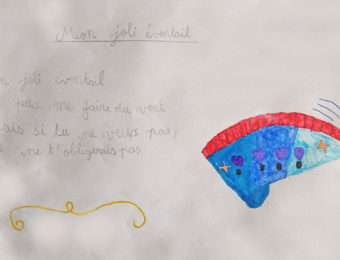 Mon joli éventail
n joli éventail
peux me faire du vent
ais si tu ne veux pas,
ne t'obligerais pas